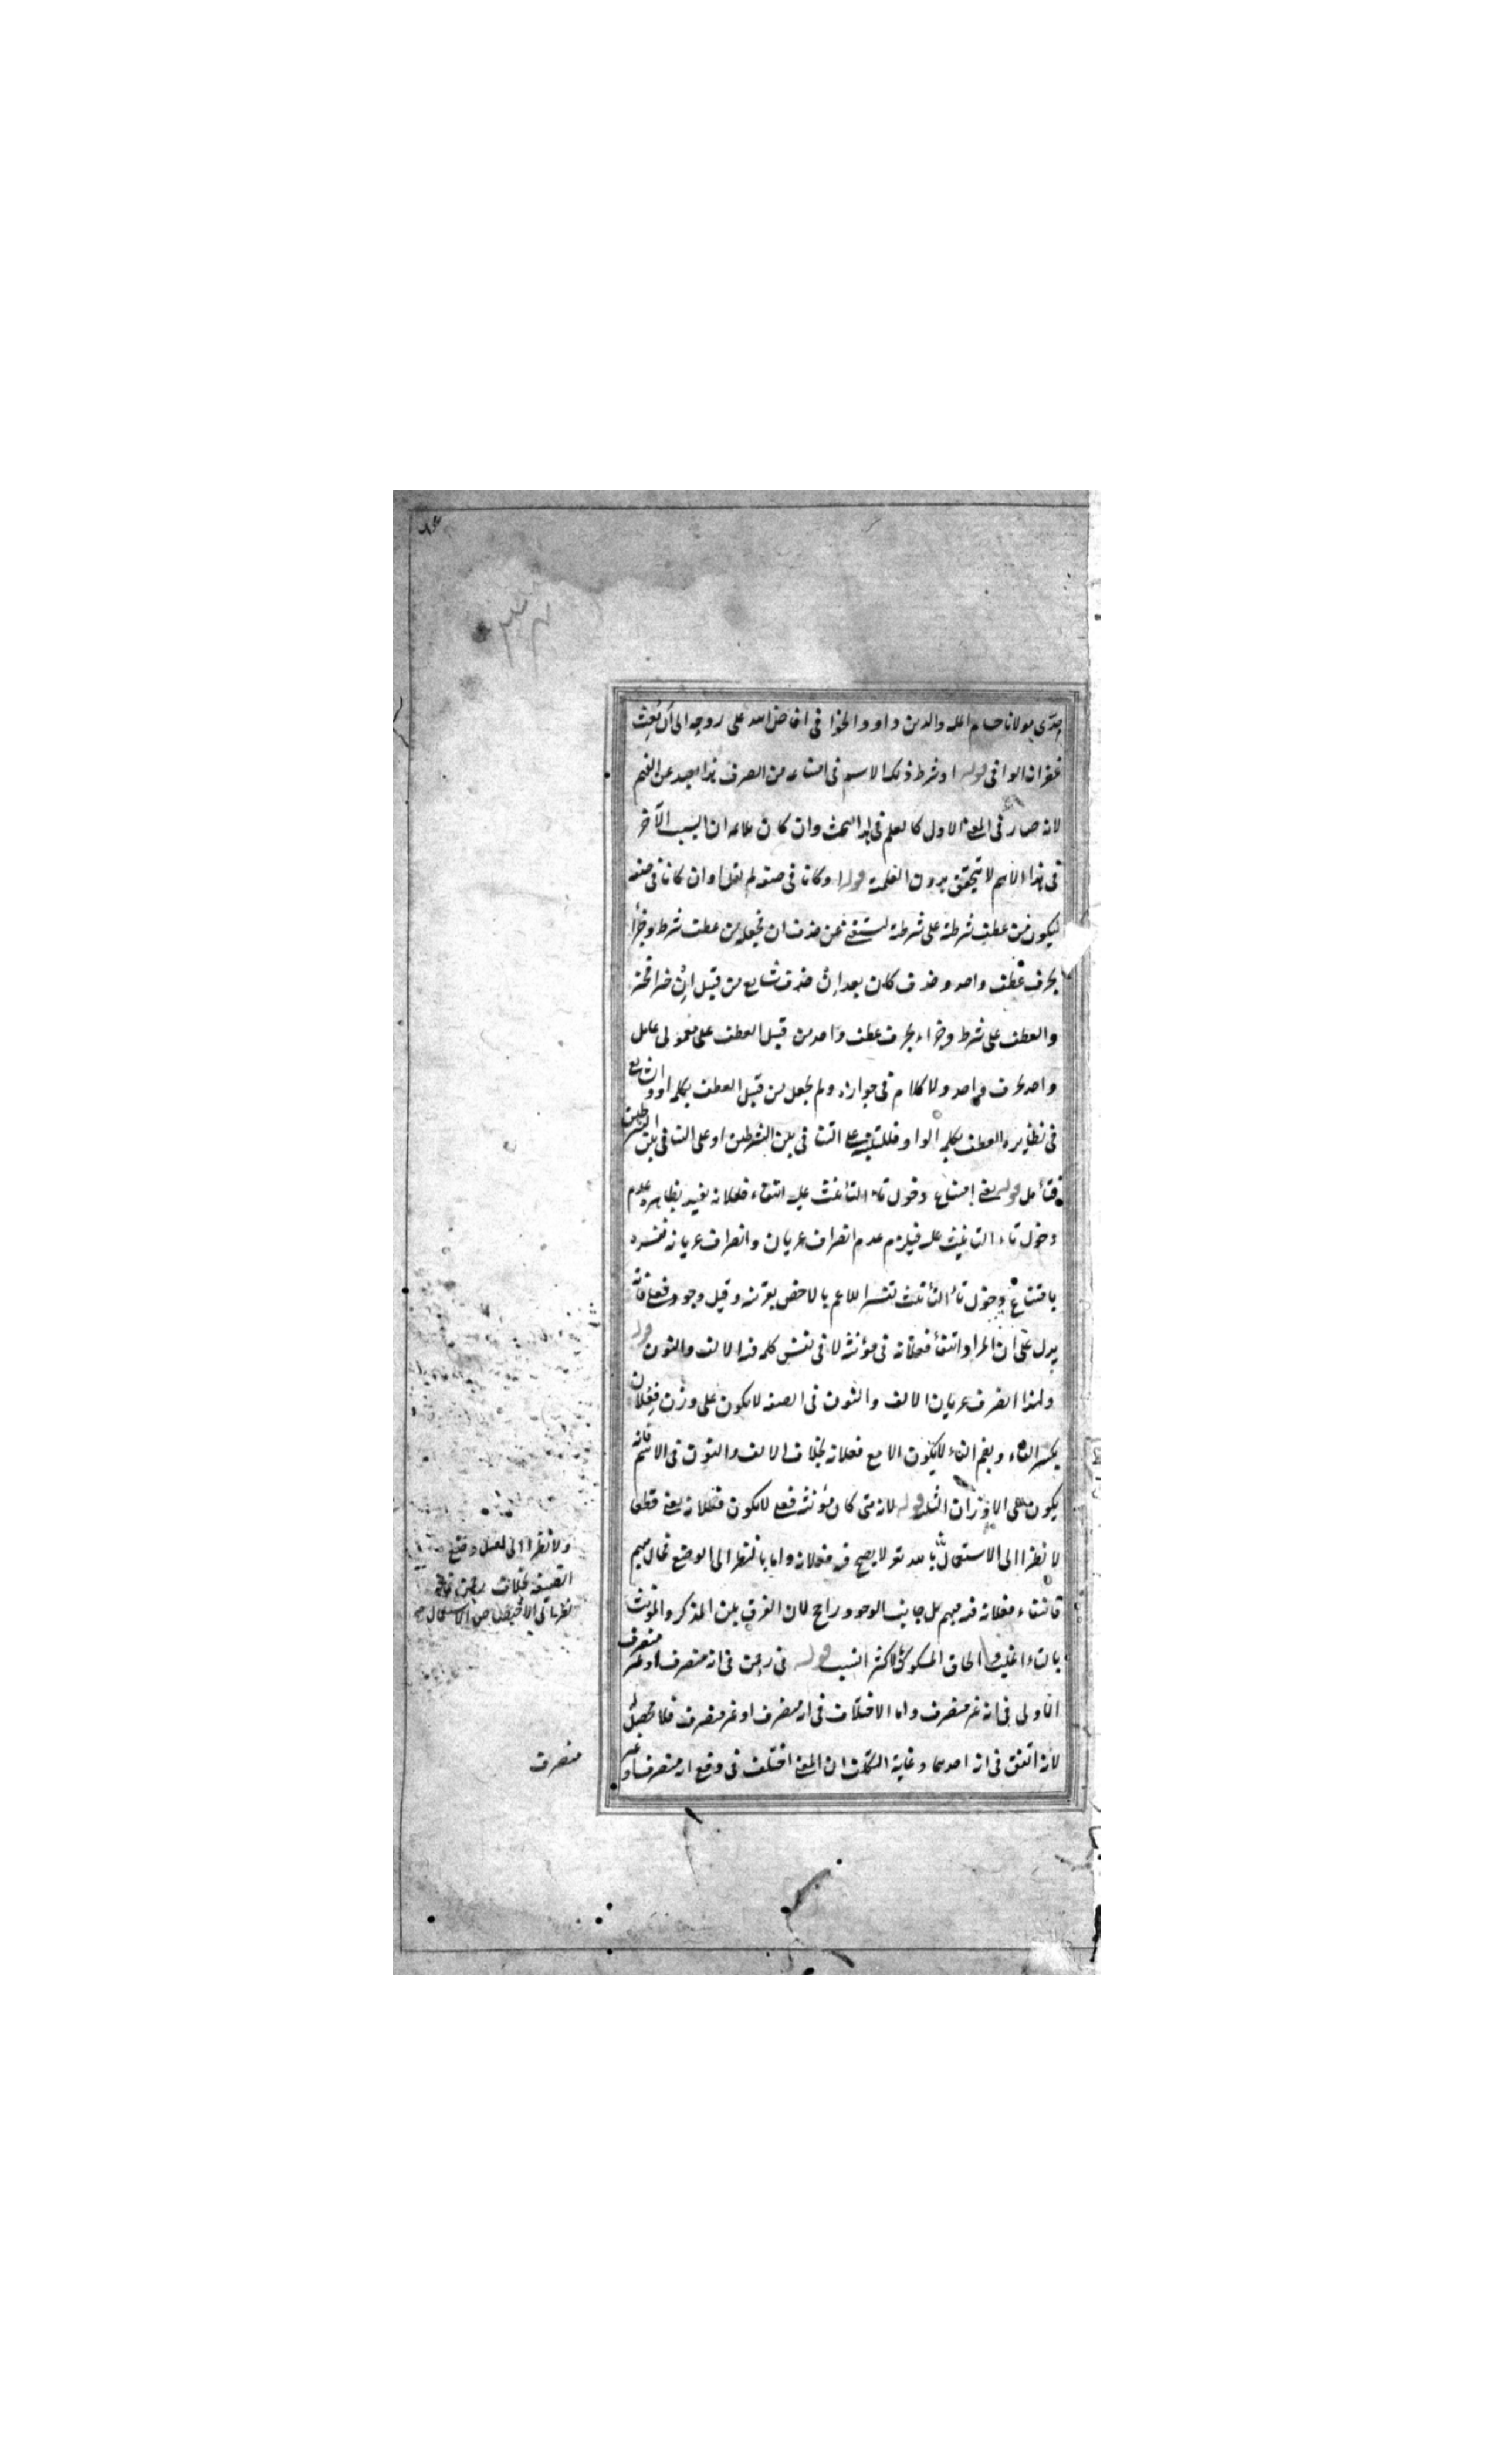 جدى مولانا حسام المله والدين داود الخوافى افاض الله على روحه الى ان يبعث
غفرانه الوافى قوله او شرط ذلك الاسم فى امتناعه من الصرف هذا بعيد عن الفهم
لانه صار فى المعنى الاول كالعلم فى هذا البحث وان كان علامه ان السبب الآخر
فى هذا الاسم لا يتحقق بدون العلمية قوله او كانا فى صفه لم يقل او ان كانا فى صفه
ليكون من عطف شرطية على شرطية من حذف ان فجعله من عطف شرط وجزاء
بحرف عطف واحد وحذف كان بعد ان حذف شايع من قبيل ان خيرا فخير
والعطف على شرط وجزاء بحرف عطف واحد من قبيل العطف على معمولى عامل
واحد بحرف واحد ولا كلام فى جوازه ولم يجعل من قبيل العطف بكلمه او والشايع
فى نظايره العطف بكلمه الواو على التنافى بين الشرطين او على التنافى بين الشرطين
فتأمل قوله يعنى امتناع دخول تاء التأنيث عليه انتفاء فعلانه يفيد بظاهره عدم
دخول تاء التأنيث عليه فيلزم عدم انصراف عريان وانصراف عريانه تفسيره
بامتناع دخول تاء التأنيث تفسير للاعم بالاخص بقرينه وقيل وجود فعلى فانه
يدل على ان المراد انتفاء فعلانه فى مؤنثه لا فى نفس كلمه فيه الالف والنون قوله
ولهذا انصرف عريان الالف والنون فى الصفه لا يكون على وزن فعلان
بكسر الفاء وبضم الفاء لا يكون الا مع فعلانه بخلاف الالف والنون فى الاسم فانه
يكون على الاوزان الثلثه قوله لانه متى كان مؤنثه فعلى لا يكون فعلانه يعنى قطعا
لا نظرا الى الاستعمال بالله تعو لا يصح فيه فعلانه واما بالنظر الى الوضع فحال مبهم
فانتفاء فعلانه فيه مبهم بل جانب الوجود راجح لان الفرق بين المذكر والمؤنث
بالتاء اغلب والحاق المسكوك بالاكثر انسب قوله فى رحمن فى انه منصرف او غير منصرف
الاولى فى انه غير منصرف واما الاختلاف فى انه منصرف او غير منصرف فلا محصل له
لانه اتفق فى انه احدهما وغاية التكلف ان المعنى اختلف فى وقع انه منصرف او غير
ولا نظرا الى اصل وضع
الصيغه بخلاف رحمن فانه
منصرف